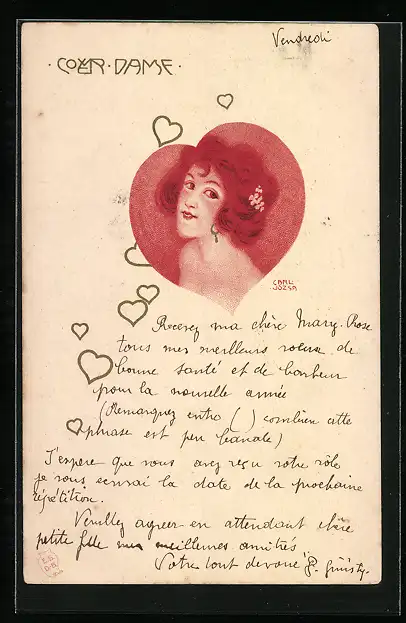 Vendredi
· COEUR · DAME ·
CARL
JOZSA
Recevez ma chère Mary-Rose
tous mes meilleurs voeux de
bonne santé et de bonheur
pour la nouvelle année
(Remarquez entre ( ) combien cette
phrase est peu banale)
J'espère que vous avez reçu votre rôle
je vous écrirai la date de la prochaine
répétition.
Veuillez agréer en attendant chère
petite fille mes meilleures amitiés
Votre tout dévoué